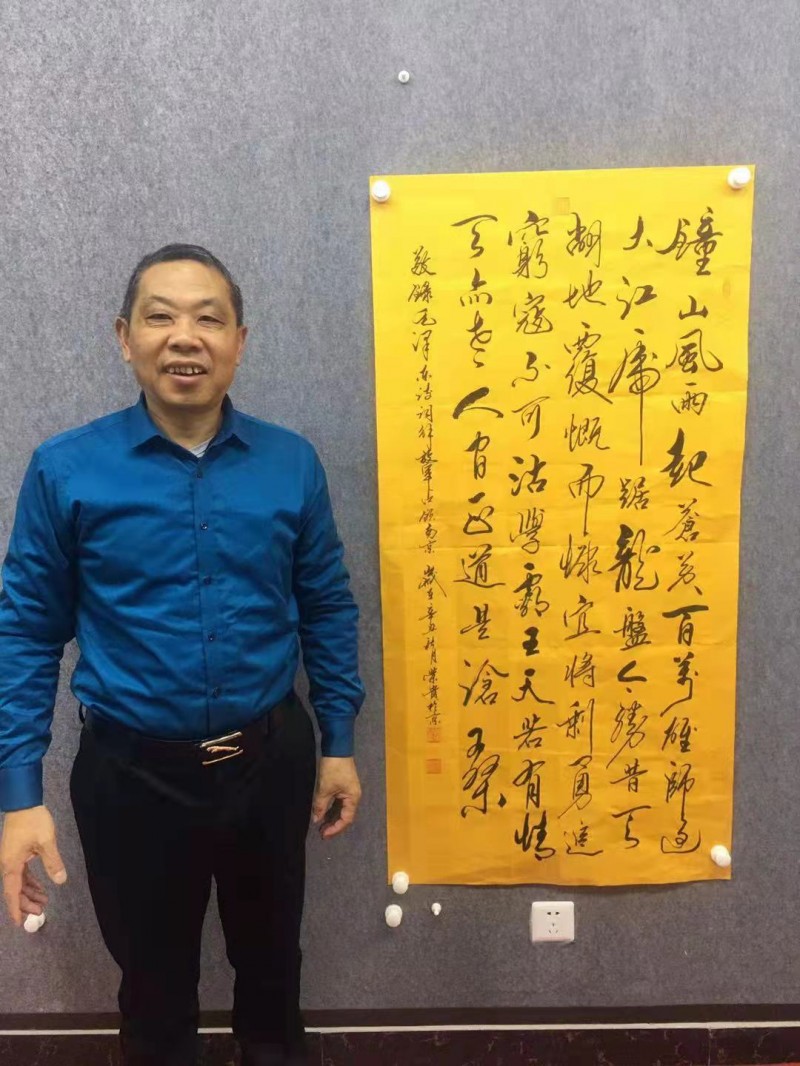 鐘山風雨起蒼黃百萬雄師過
大江虎踞龍盤今勝昔天
翻地覆慨而慷宜將剩勇追
窮寇不可沽學霸王天若有情
天亦老人間正道是滄桑
敬錄毛澤東詩詞解放軍占領南京 歲在辛丑月榮貴於京